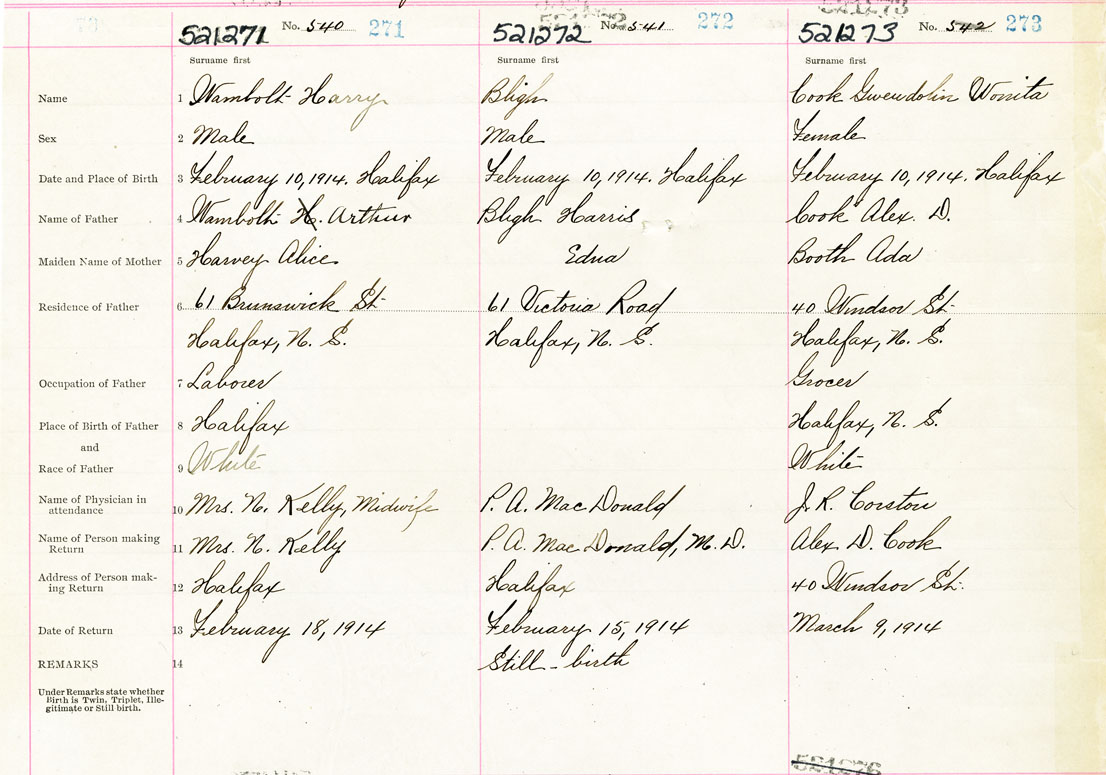 521271 No. 540 271
521272 No. 541 272
521273 No. 542 273
Surname first Surname first Surname first
Name 1 Wambolt Harry Bligh Cook Gwendolin Wonita
Sex 2 Male Male Female
Date and Place of Birth 3 February 10, 1914. Halifax February 10, 1914. Halifax February 10, 1914. Halifax
Name of Father 4 Wambolt H. Arthur Bligh Harris Cook Alex. D.
Maiden Name of Mother 5 Harvey Alice Edna Booth Ada
Residence of Father 6 61 Brunswick St. 61 Victoria Road 40 Windsor St.
Halifax, N. S. Halifax, N. S. Halifax, N. S.
Occupation of Father 7 Laborer Grocer
Place of Birth of Father 8 Halifax Halifax, N. S.
and
Race of Father 9 White White
Name of Physician in
attendance 10 Mrs. N. Kelly, Midwife P. A. MacDonald J. R. Corston
Name of Person making
Return 11 Mrs. N. Kelly P. A. MacDonald, M. D. Alex D. Cook
Address of Person mak-
ing Return 12 Halifax Halifax 40 Windsor St.
Date of Return 13 February 18, 1914 February 15, 1914 March 9, 1914
REMARKS 14 Still-birth
Under Remarks state whether
Birth is Twin, Triplet, Ille-
gitimate or Still birth.